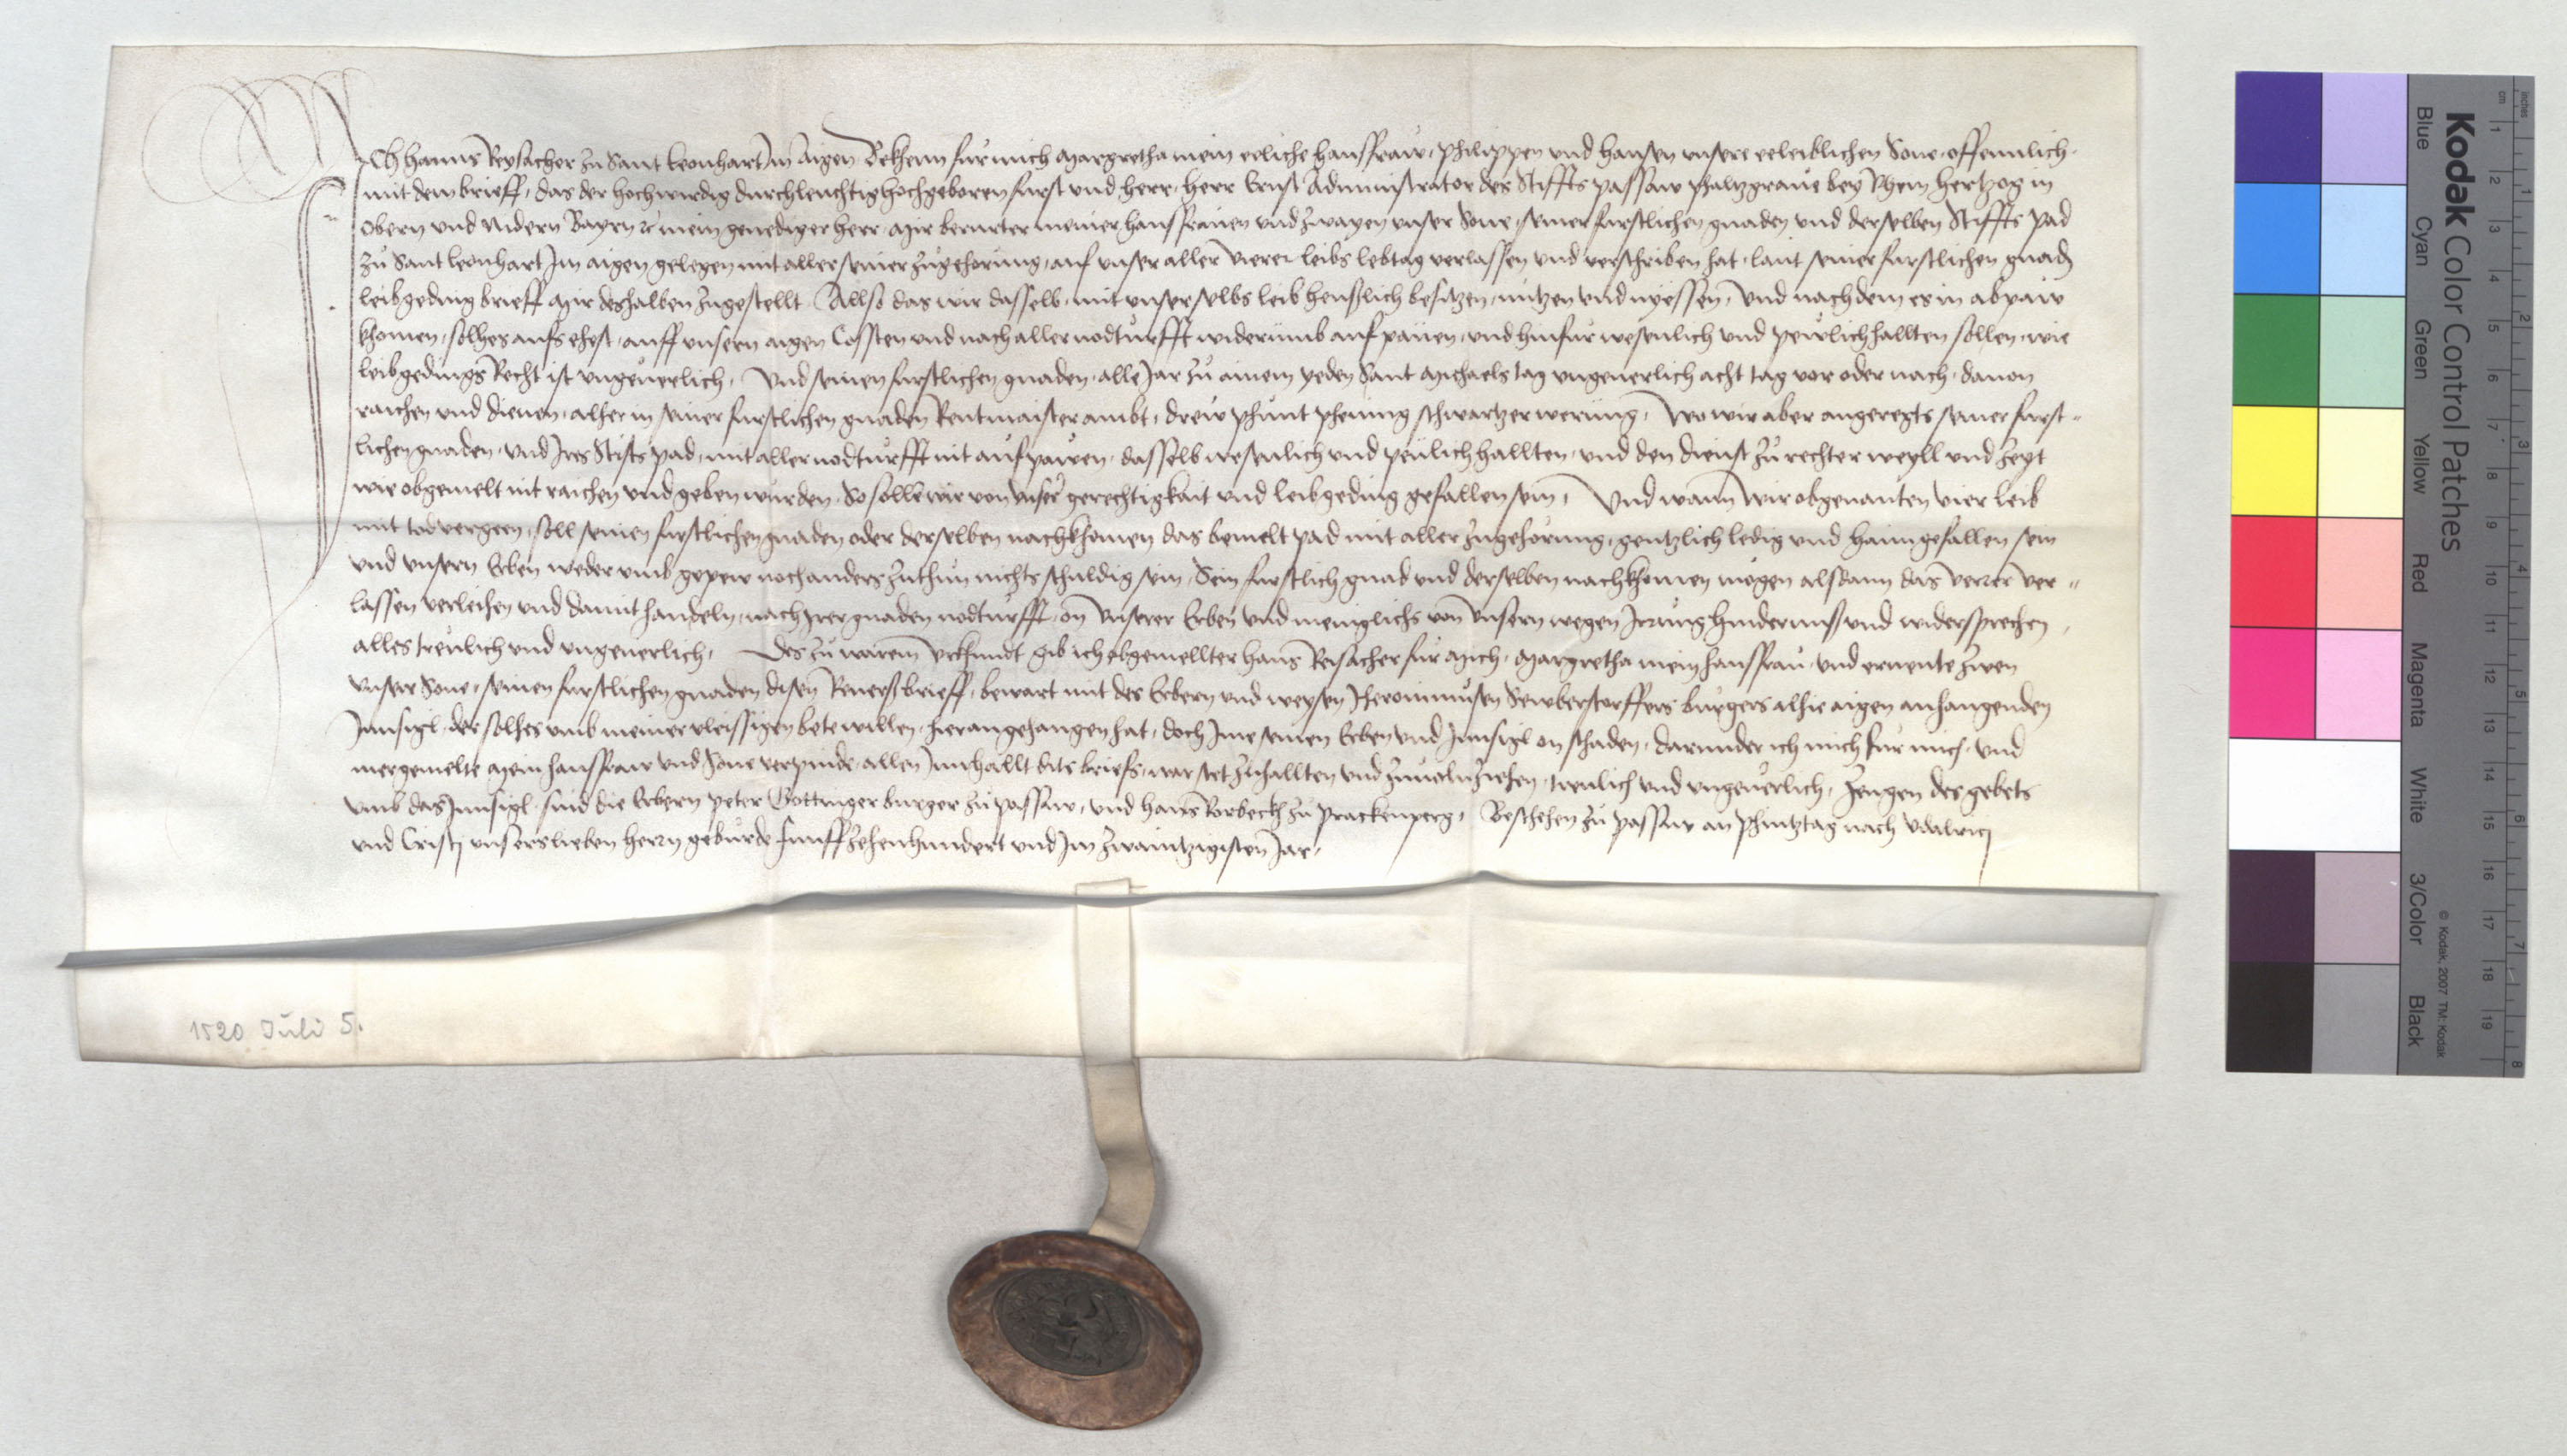 Ich Hanns Reysacher zu Sant Leonhart Im Aigen Bekhenn fur mich Margretha mein eeliche hausfraw, Philippen und Hansen unsere eeleiblichen Sone offennlich
mit dem brieff, das der hochwirdig durchleuchtig hochgeboren furst und herr, herr Ernst Administrator des Stiffts passaw phaltzgraue bey Rhein hertzog in
Obern und Nidern Bayrn ꝛc mein genediger herr Mir berurter meiner hausfrauen und zwayen unser Sone, seiner furstlichen gnaden und derselben Stiffts pad
zu Sant Leonhart Im aigen gelegen mit aller seiner zugehorung, auf unser aller vierer leibs lebtag verlassen und verschriben hat, laut seiner furstlichen gnadn
leibgeding brieff Mir deshalben zugestellt. Allso das wir dasselb, mit unser selbs leib heuslich besitzen, nutzen und nyessen, Und nachdem es in abpaw
khomen, solhes aufs ehest, auff unsern aigen Cossten und nach aller nodturfft widerumb auf pauen, und hinfur wesenlich und pewlich hallten sollen, wie
leibgedings Recht ist ungeuerlich, Und seinen furstlichen gnaden, alle Jar zu ainem yeden Sant Michaels tag ungeuerlich acht tag vor oder nach, dauon
raichen und dienen, alher in seiner furstlichen gnaden Rentmaister ambt, drew phunt phening schwartzer werung, Wo wir aber angeregts seiner furst-
lichen gnaden, und Ires Stifts pad, mit aller nodturfft nit auf pawen, dasselb wesenlich und peulich hallten, und den dienst zu rechter weyll und zeyt
wie obgemelt nit raichen und geben wurden, So sollen wir von unser gerechtigkait und leibgeding gefallen sein, Und wann wir obgenanten vier leib
mit tod vergeen, soll seinen furstlichen gnaden oder derselben nachkhomen das bemelt pad mit aller zugehorung, gentzlich ledig und haimgefallen sein
und unsern Erben weder umb gepew noch anders zuthun nichts schuldig sein, Sein furstlich gnad und derselben nachkhomen mogen alsdann das verrer ver-
lassen verleihen und damit handeln, nach Irer gnaden nodturfft, on unserer Erben und meniglichs von unsern wegen Irrung hindernuss und widersprechen,
alles treulich und ungeuerlich, Des zu warem Urkhundt gib ich obgemellter Hans Reisacher fur Mich, Margretha mein hausfrau, und ernente zwen
unser Sone, seinen furstlichen gnaden disen Reuersbrieff, bewart mit des Erbern und weysen Jheronimusen Sewberstorffers burgers alhie aigen anhangenden
Innsigl, der solhes umb meiner vleissigen bete willen, hieran gehangen hat, doch Ime seinen Erben und Innsigl on schaden, darunder ich mich fur mich und
mergemelte mein hausfraw und Sone verpinde, allen Innhallt dits briefs, war stet zuhallten und zuuolnziehen, treulich und ungeuerlich, Zeugen des gebets
umb das Innsigl, sind die Erbern peter Gottinger burger zu passaw, und hans Vorbeckh zu prackenperg, Beschehen zu passaw an phintztag nach Udalrici
und Cristj unsers lieben herrn geburde funffzehenhundert und Im zwaintzigisten Jar,
1520 Juli 5.
Kodak Color Control Patches
Blue Cyan Green Yellow Red Magenta White 3/Color Black
© Kodak, 2007 TM: Kodak
cm 1 2 3 4 5 6 7 8 9 10 11 12 13 14 15 16 17 18 19
inches 1 2 3 4 5 6 7 8